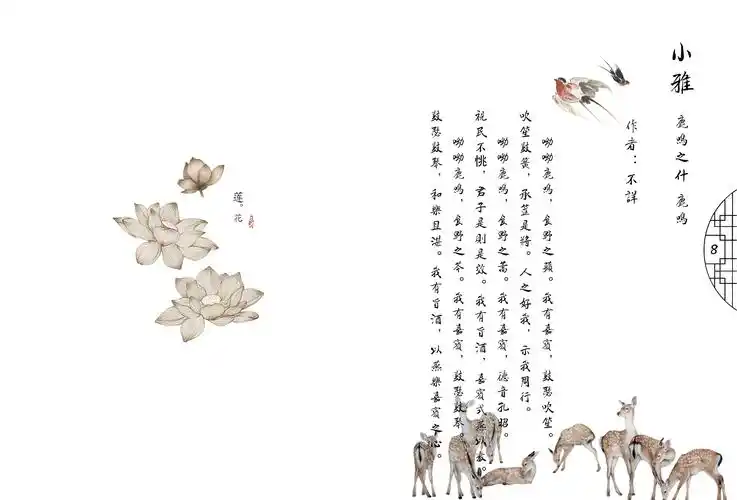 小雅
鹿鳴之什 鹿鳴
作者：不詳
呦呦鹿鳴，食野之蘋。我有嘉賓，鼓瑟吹笙。
吹笙鼓簧，承筐是將。人之好我，示我周行。
呦呦鹿鳴，食野之蒿。我有嘉賓，德音孔昭。
視民不恌，君子是則是效。我有旨酒，嘉賓式燕以敖。
呦呦鹿鳴，食野之芩。我有嘉賓，鼓瑟鼓琴。
鼓瑟鼓琴，和樂且湛。我有旨酒，以燕樂嘉賓之心。
8
蓮。花